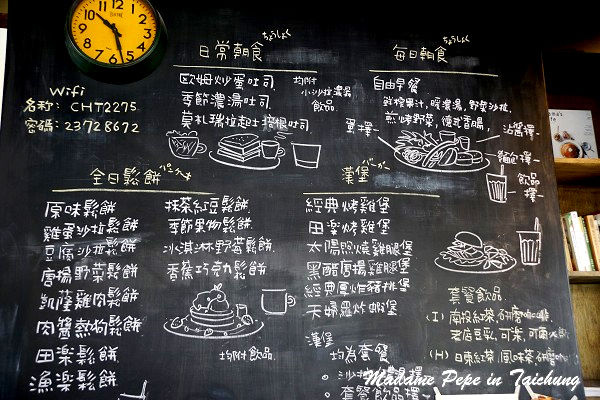 Wifi
名稱: CHT2275.
密碼: 23728672
日常朝食
ちょうしょく
歐姆炒蛋吐司.
季節濃湯吐司.
莫札瑞拉起士
吐司
均附
小沙拉濃品
飲品
毎日朝食
ちょうしょく
自由早餐
鮮榨果汁、暖濃湯,野菜沙拉,
煎烤野菜,
單擇
沾醬擇
麵包擇
飲品擇
全日鬆餅
パンケーキ
原味鬆餅
雞蛋沙拉鬆餅
豆腐沙拉鬆餅
農場野菜鬆餅
凱薩雞肉鬆餅
肉醬熱狗鬆餅
田楽鬆餅
漁楽鬆餅
抹茶紅豆鬆餅
季節果物鬆餅
冰淇淋野莓鬆餅
香蕉巧克力鬆餅
均附飲品.
漢堡
バーガー
經典烤雞堡
田楽烤雞堡
太陽照燒雞腿堡
黑醋農場雞腿堡
經典厚炸豬排堡
天婦羅炸蝦堡
漢堡
均為套餐
套餐飲品
套餐飲品
(I) 南投紅茶、研磨
老店豆乳、可楽、可爾
(H) 日東紅茶、風味茶、研磨
Madame Pepe in Taichung